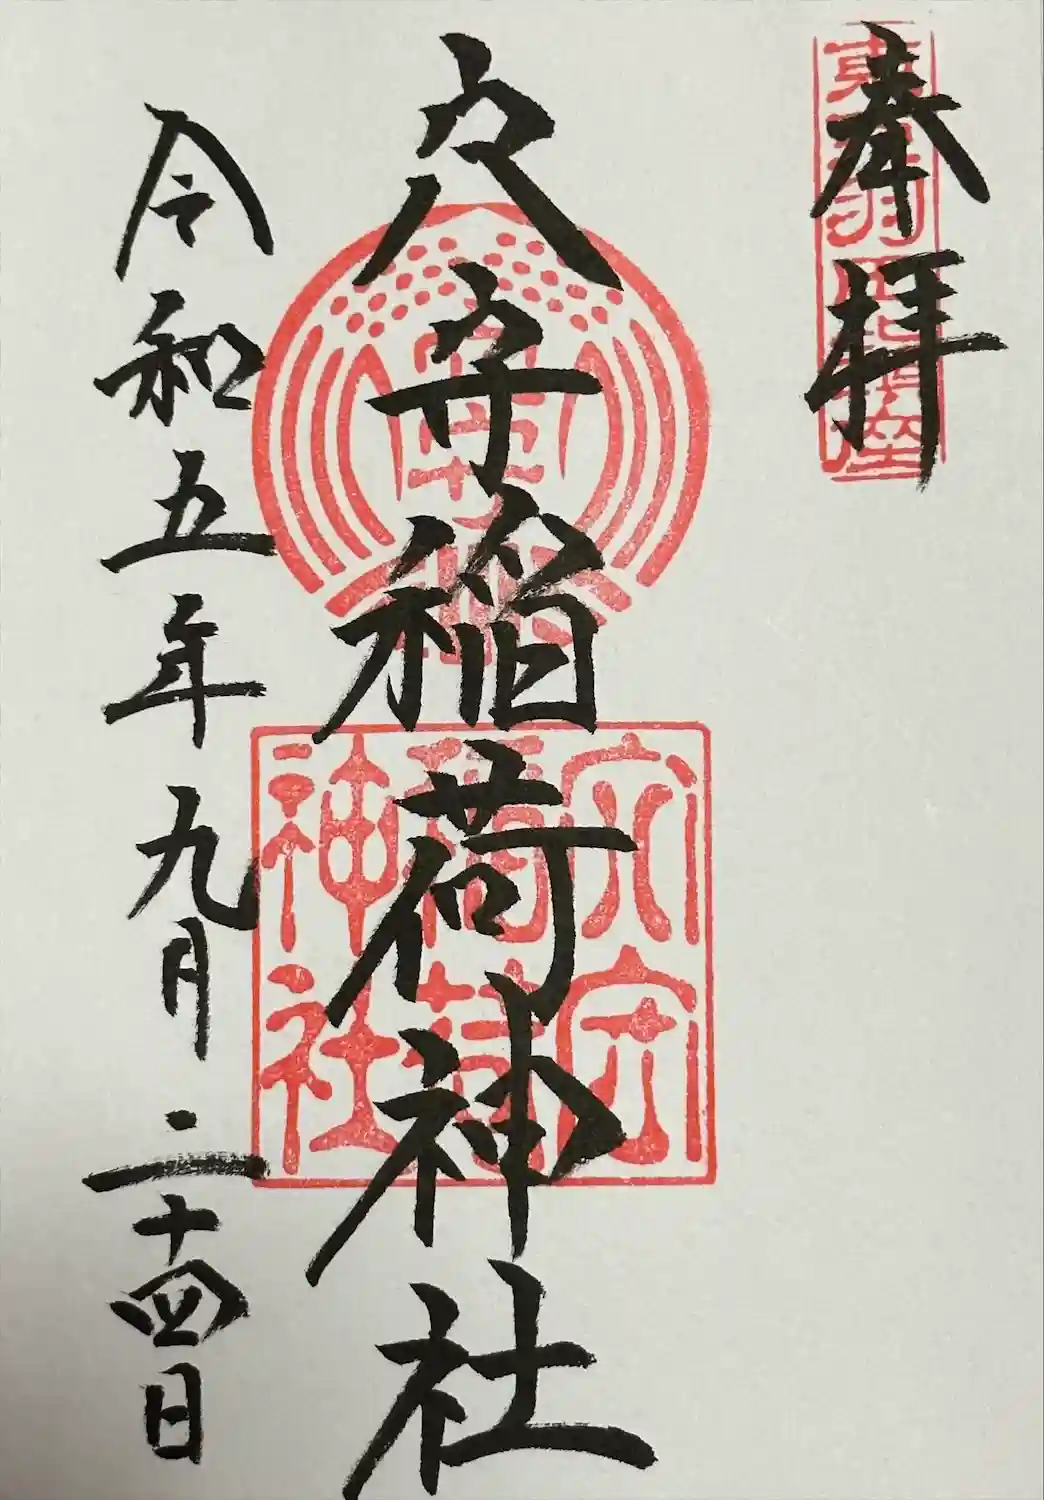 奉拝
穴守稲荷神社
令和五年九月二十四日
穴守
稲荷
神社